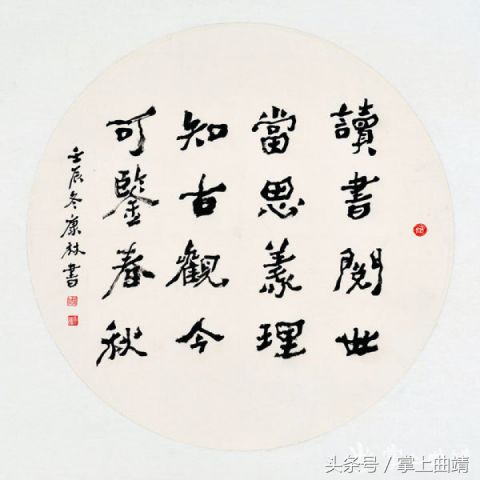 讀書閱世
當思義理
知古觀今
可鑒春秋
壬辰冬康林書
头条号/掌上曲靖